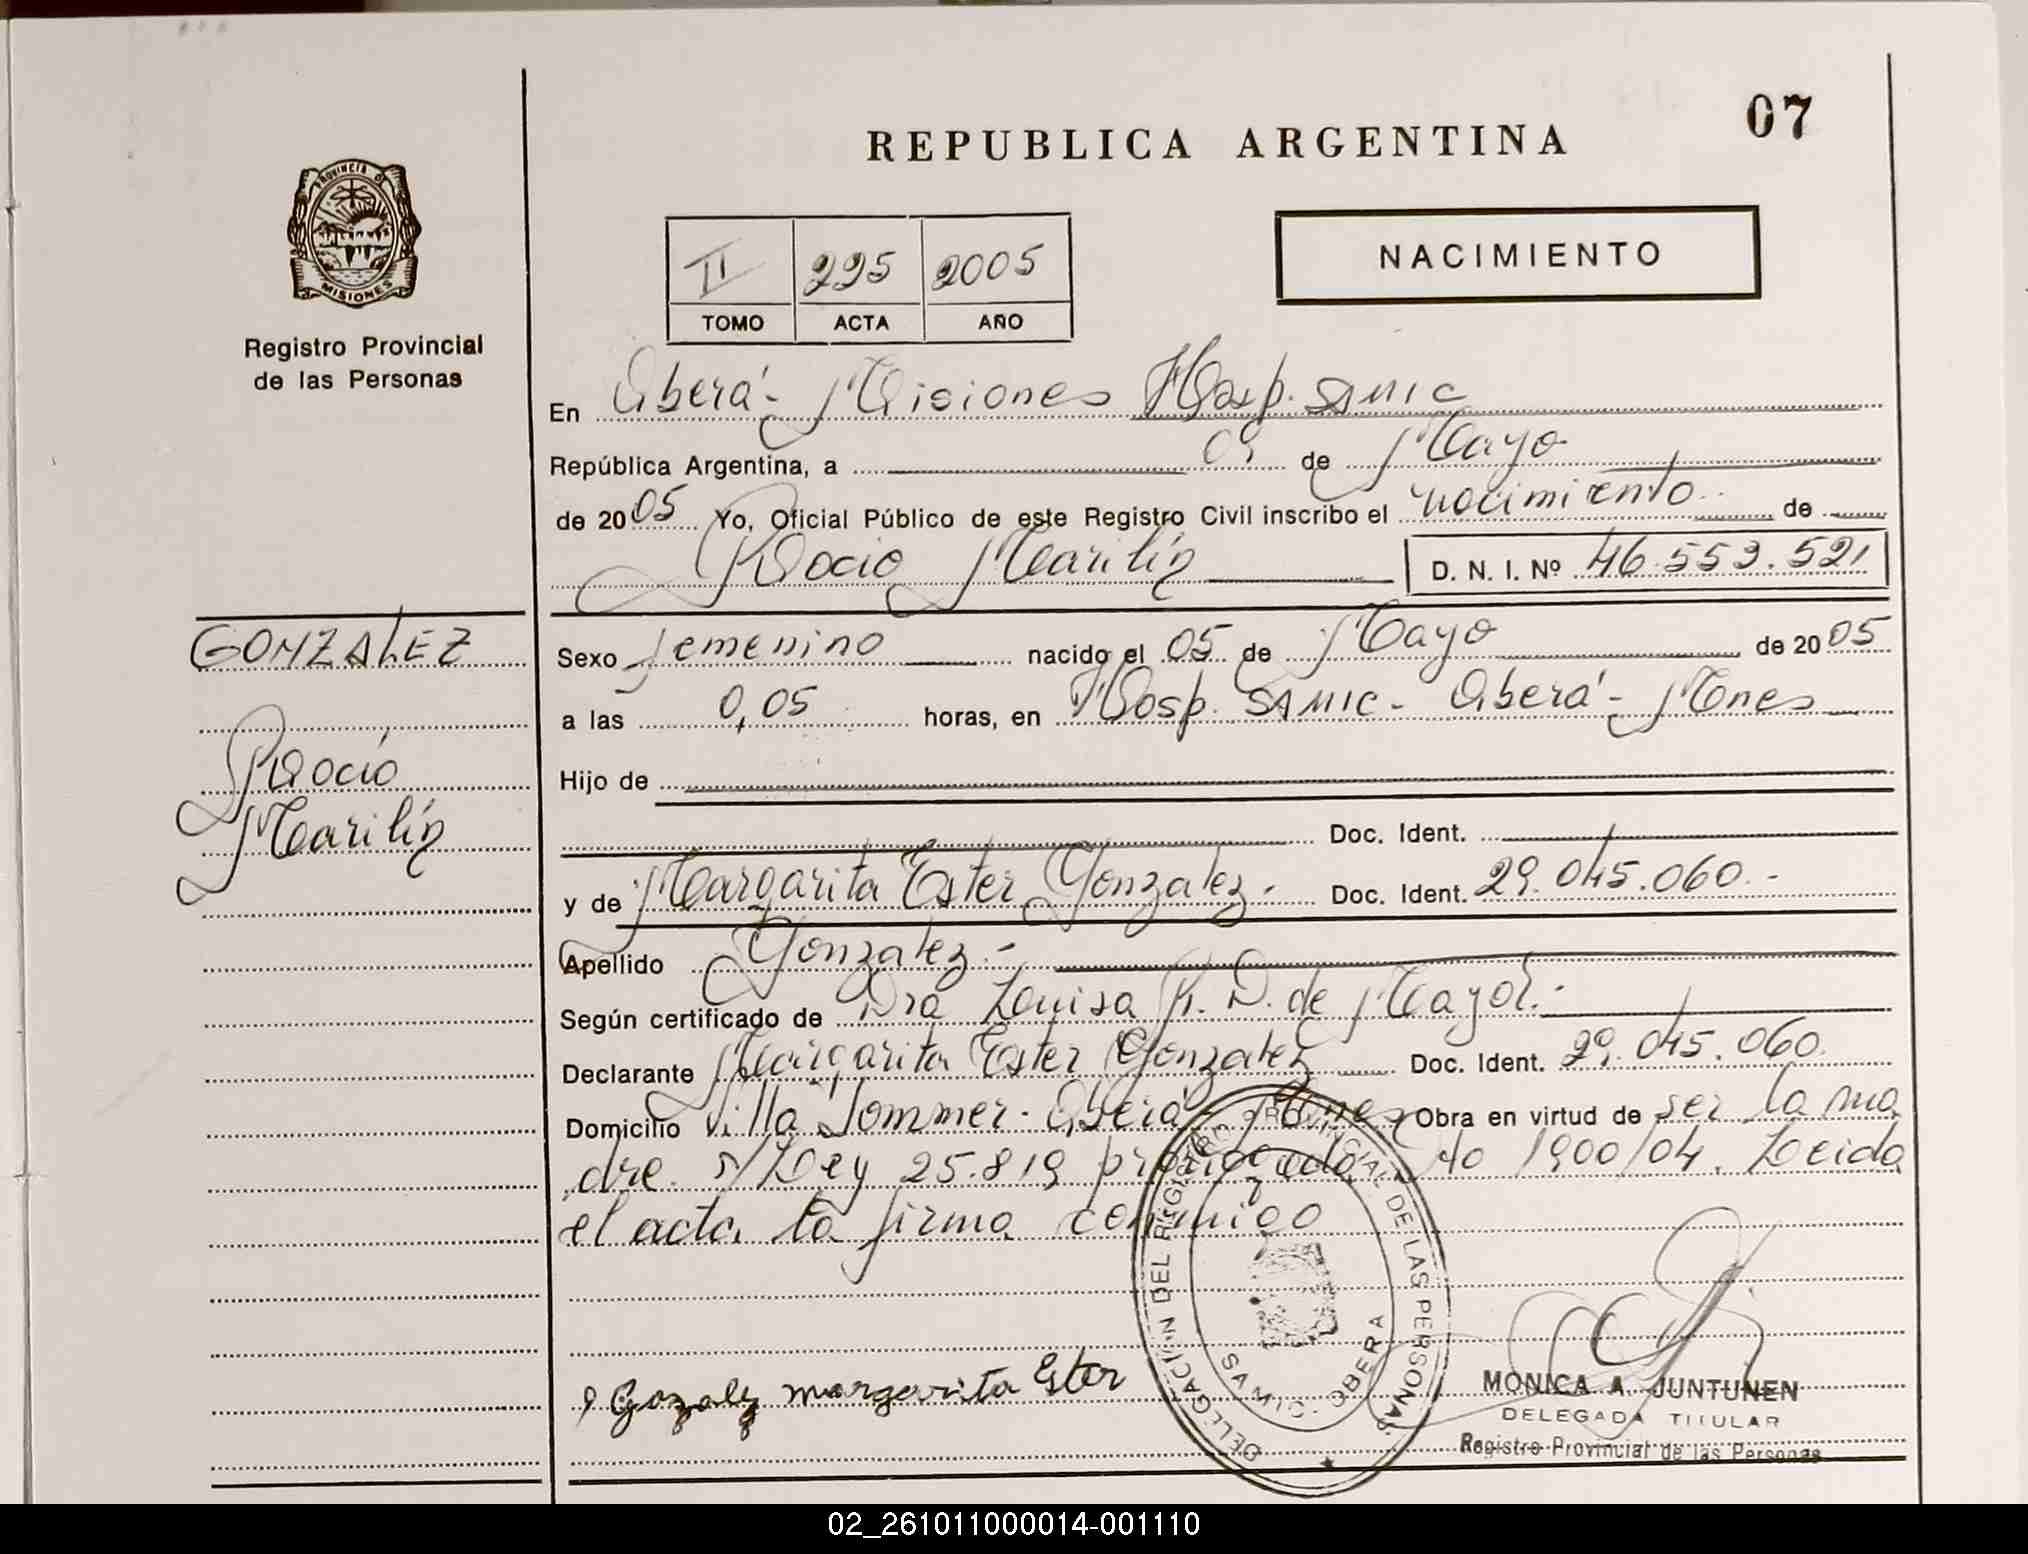 07
REPUBLICA ARGENTINA
PROVINCIA DE
MISIONES
Registro Provincial
de las Personas
II 225 2005
TOMO ACTA AÑO
NACIMIENTO
En Oberá - Misiones Hosp. SAMIC
República Argentina, a 09 de Mayo
de 2005 Yo, Oficial Público de este Registro Civil inscribo el nacimiento de
Rocio Marilín D. N. I. Nº 46.553.521
GONZALEZ
Rocío
Marilín
Sexo femenino nacido el 05 de Mayo de 2005
a las 0,05 horas, en Hosp. SAMIC - Oberá - Mones
Hijo de
Doc. Ident.
y de Margarita Ester Gonzalez. Doc. Ident. 29.045.060.-
Apellido Gonzalez.-
Según certificado de Dra Luisa R. D. de Mayol.-
Declarante Margarita Ester Gonzalez Doc. Ident. 29.045.060.
Domicilio Villa Sommer - Oberá - Mones Obra en virtud de ser la ma
dre s/Ley 25.819 prorrogado 1900/04. Leida
el acta la firma conmigo
Gozalez margarita Ester
DELEGACION DEL REGISTRO PROVINCIAL DE LAS PERSONAS
SAMIC - OBERA
MONICA A. JUNTUNEN
DELEGADA TITULAR
Registro Provincial de las Personas
02_261011000014-001110